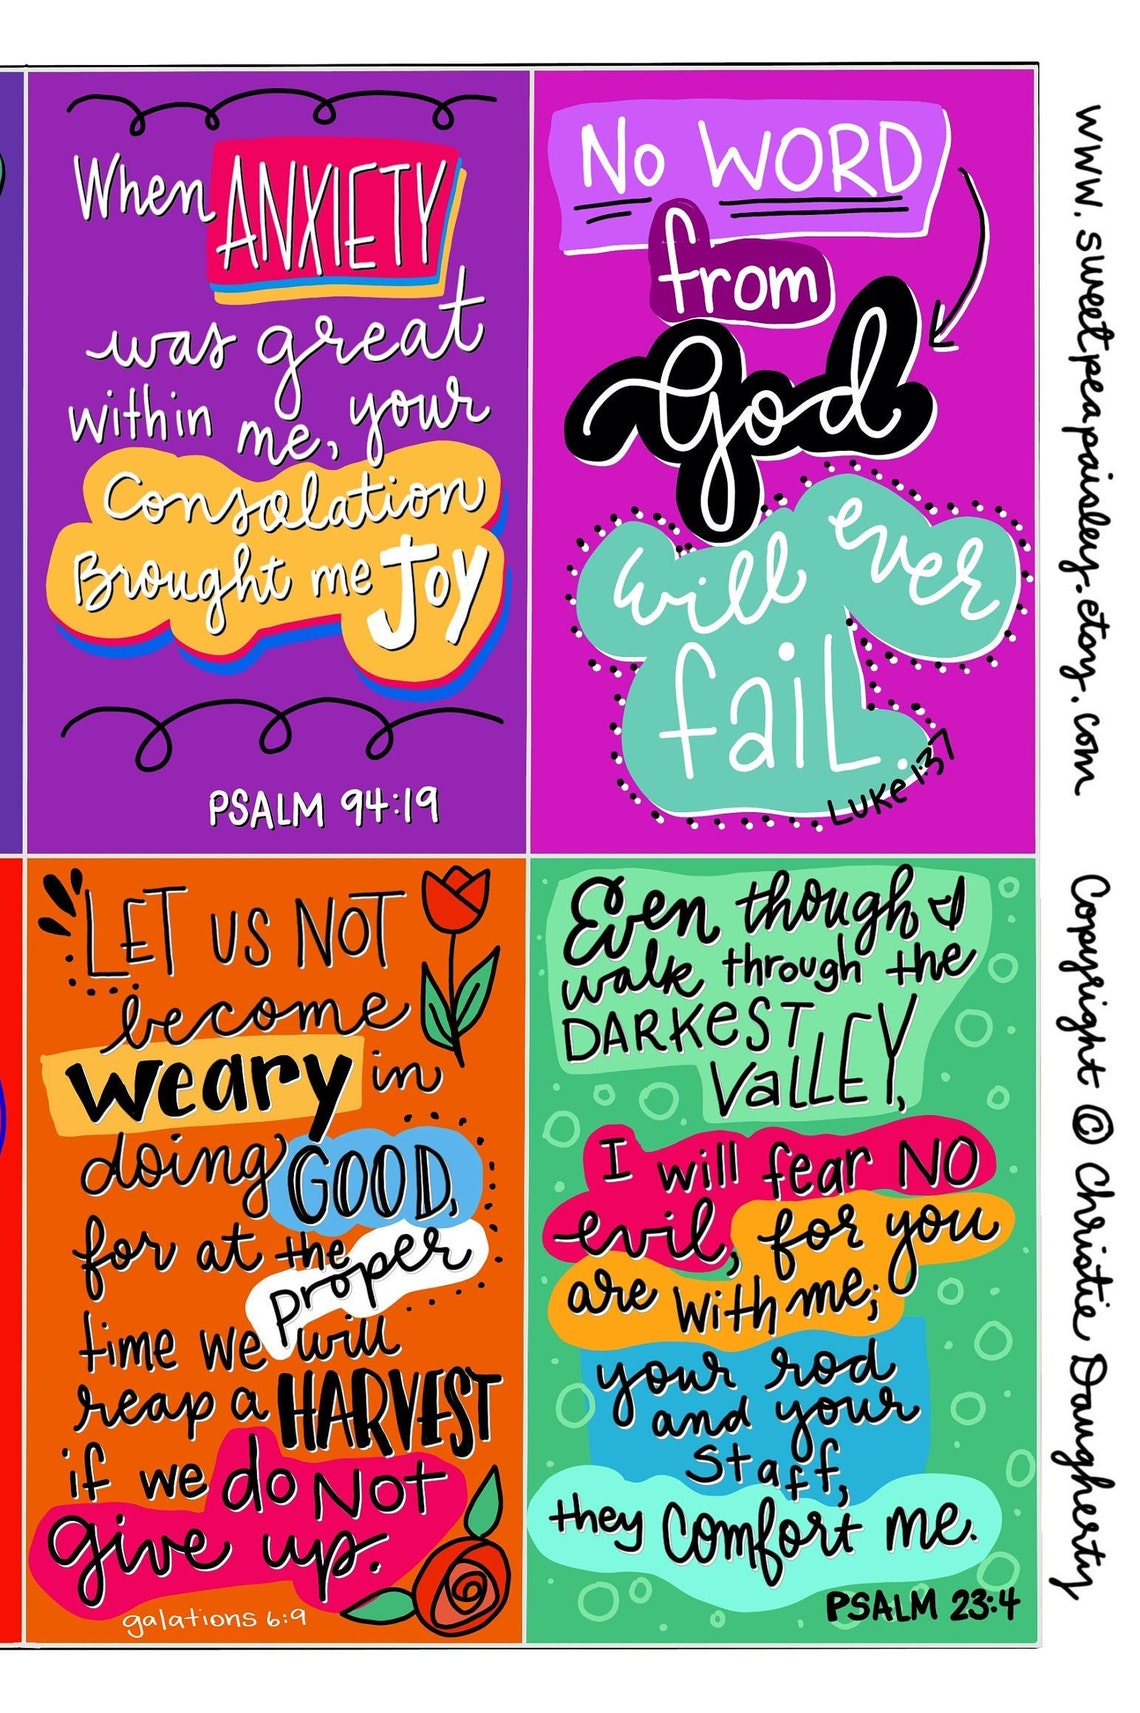 When ANXIETY
was great
within me, your
Consolation
Brought me Joy
PSALM 94:19
No WORD
from
God
will ever
fail.
Luke 1:37
LET US NOT
become
weary in
doing GOOD,
for at the proper
time we will
reap a HARVEST
if we do Not
give up.
galations 6:9
Even though I
walk through the
DARKEST
VALLEY,
I will fear NO
evil, for you
are with me;
your rod
and your
staff,
they comfort me.
PSALM 23:4
www.sweetpeapaisley.etsy.com
Copyright © Christie Daugherty